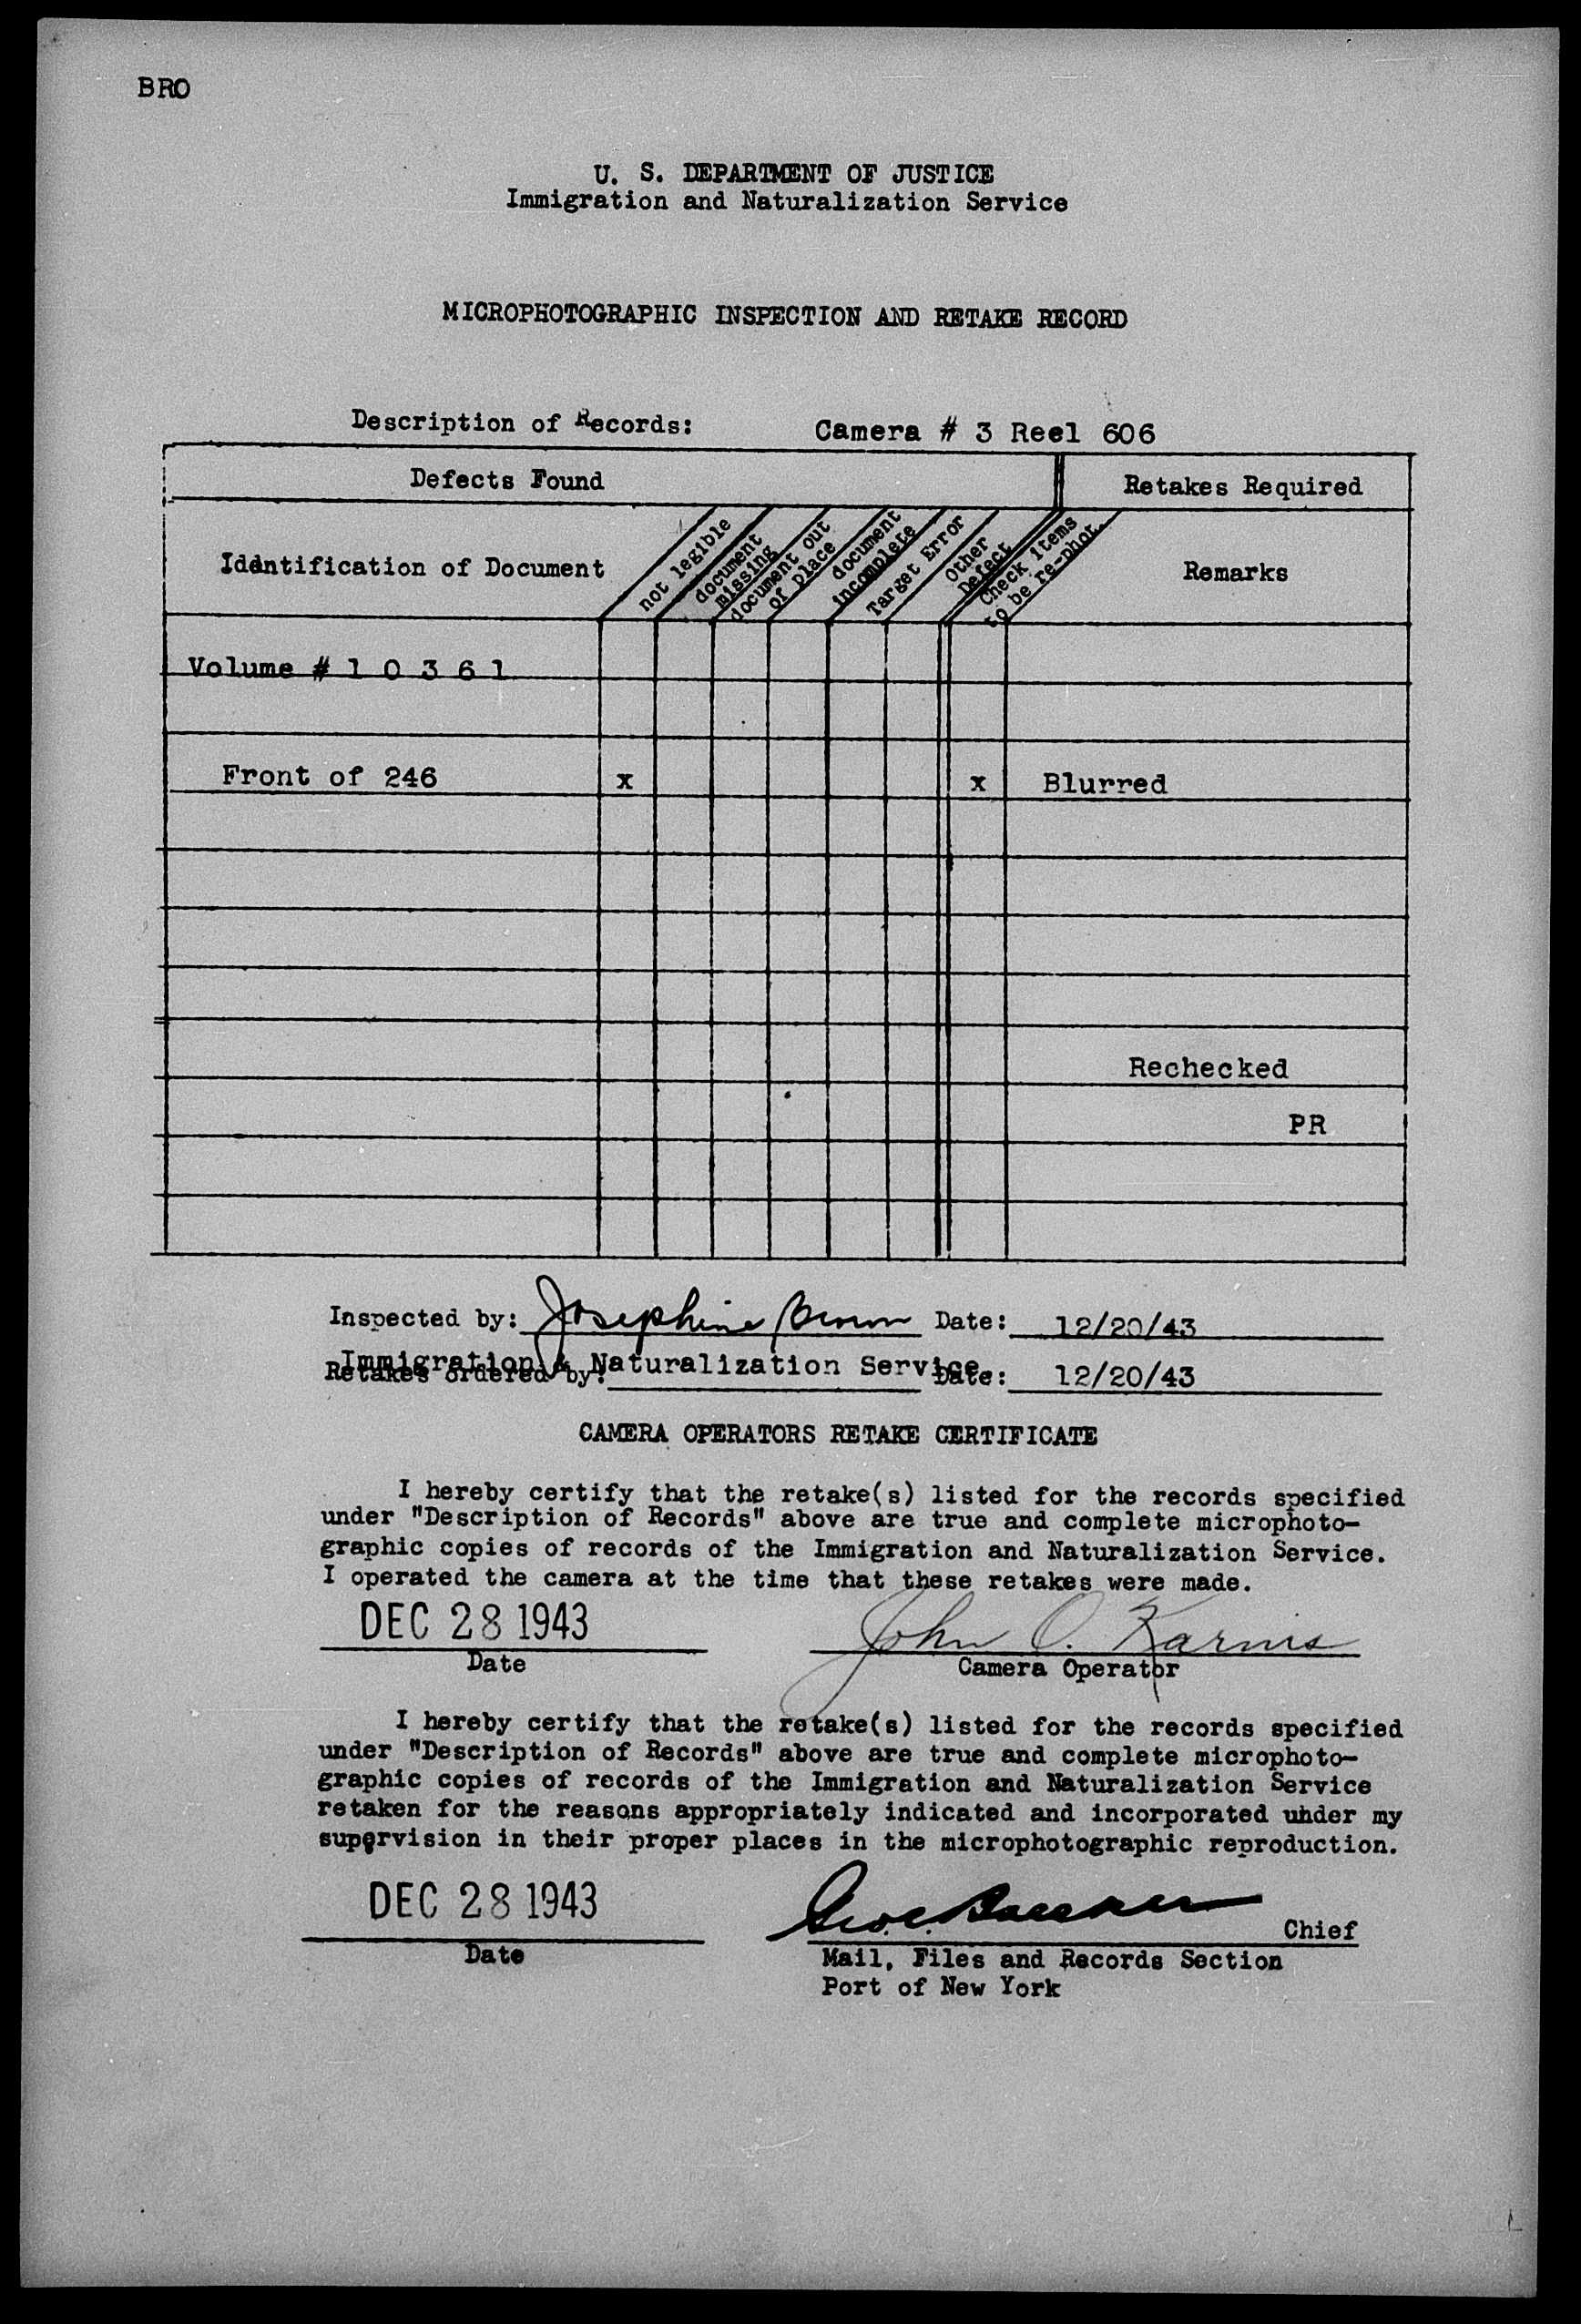 BRO
U. S. DEPARTMENT OF JUSTICE
Immigration and Naturalization Service
MICROPHOTOGRAPHIC INSPECTION AND RETAKE RECORD
Description of Records: Camera # 3 Reel 606
Defects Found Retakes Required
Idantification of Document
not legible
document missing
document out of place
document incomplete
Target Error
Other Defect
Check items to be re-phot.
Remarks
Volume # 1 0 3 6 1
Front of 246 x x Blurred
Rechecked
PR
Inspected by: Josephine Brown Date: 12/20/43
Immigration & Naturalization Service
Retakes ordered by: Date: 12/20/43
CAMERA OPERATORS RETAKE CERTIFICATE
I hereby certify that the retake(s) listed for the records specified
under "Description of Records" above are true and complete microphoto-
graphic copies of records of the Immigration and Naturalization Service.
I operated the camera at the time that these retakes were made.
DEC 28 1943 John O. Karnis
Date Camera Operator
I hereby certify that the retake(s) listed for the records specified
under "Description of Records" above are true and complete microphoto-
graphic copies of records of the Immigration and Naturalization Service
retaken for the reasons appropriately indicated and incorporated under my
supervision in their proper places in the microphotographic reproduction.
DEC 28 1943
Chief
Date Mail, Files and Records Section
Port of New York